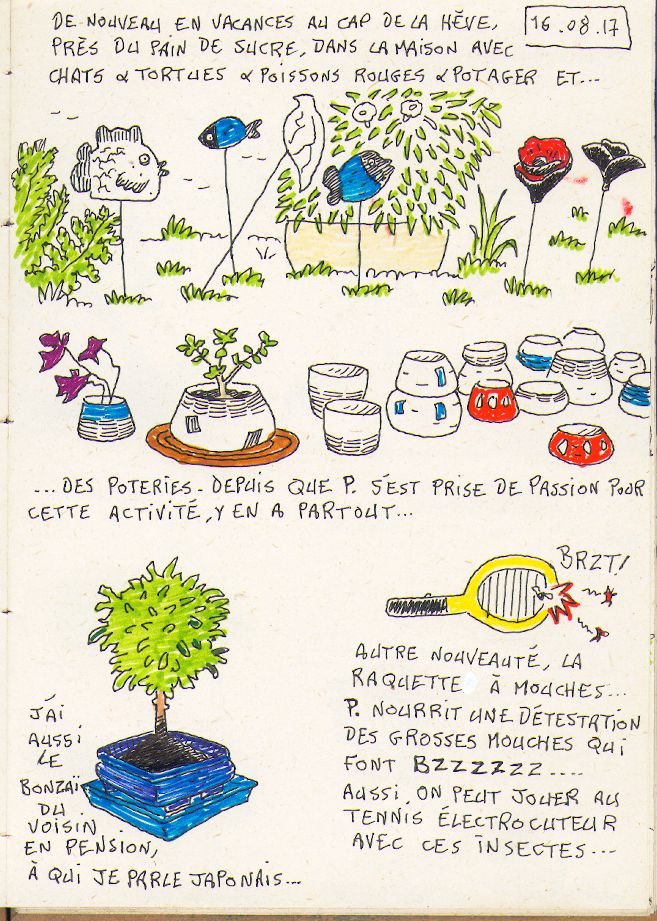 DE NOUVEAU EN VACANCES AU CAP DE LA HÈVE,
16.08.17
PRÈS DU PAIN DE SUCRE, DANS LA MAISON AVEC
CHATS & TORTUES & POISSONS ROUGES & POTAGER ET...
...DES POTERIES - DEPUIS QUE P. S'EST PRISE DE PASSION POUR
CETTE ACTIVITÉ, Y EN A PARTOUT...
J'AI
AUSSI
LE
BONZAÏ
DU
VOISIN
EN PENSION,
À QUI JE PARLE JAPONAIS...
BRZT!
AUTRE NOUVEAUTÉ, LA
RAQUETTE À MOUCHES...
P. NOURRIT UNE DÉTESTATION
DES GROSSES MOUCHES QUI
FONT BZZZZZZ....
AUSSI, ON PEUT JOUER AU
TENNIS ÉLECTROCUTEUR
AVEC CES INSECTES...